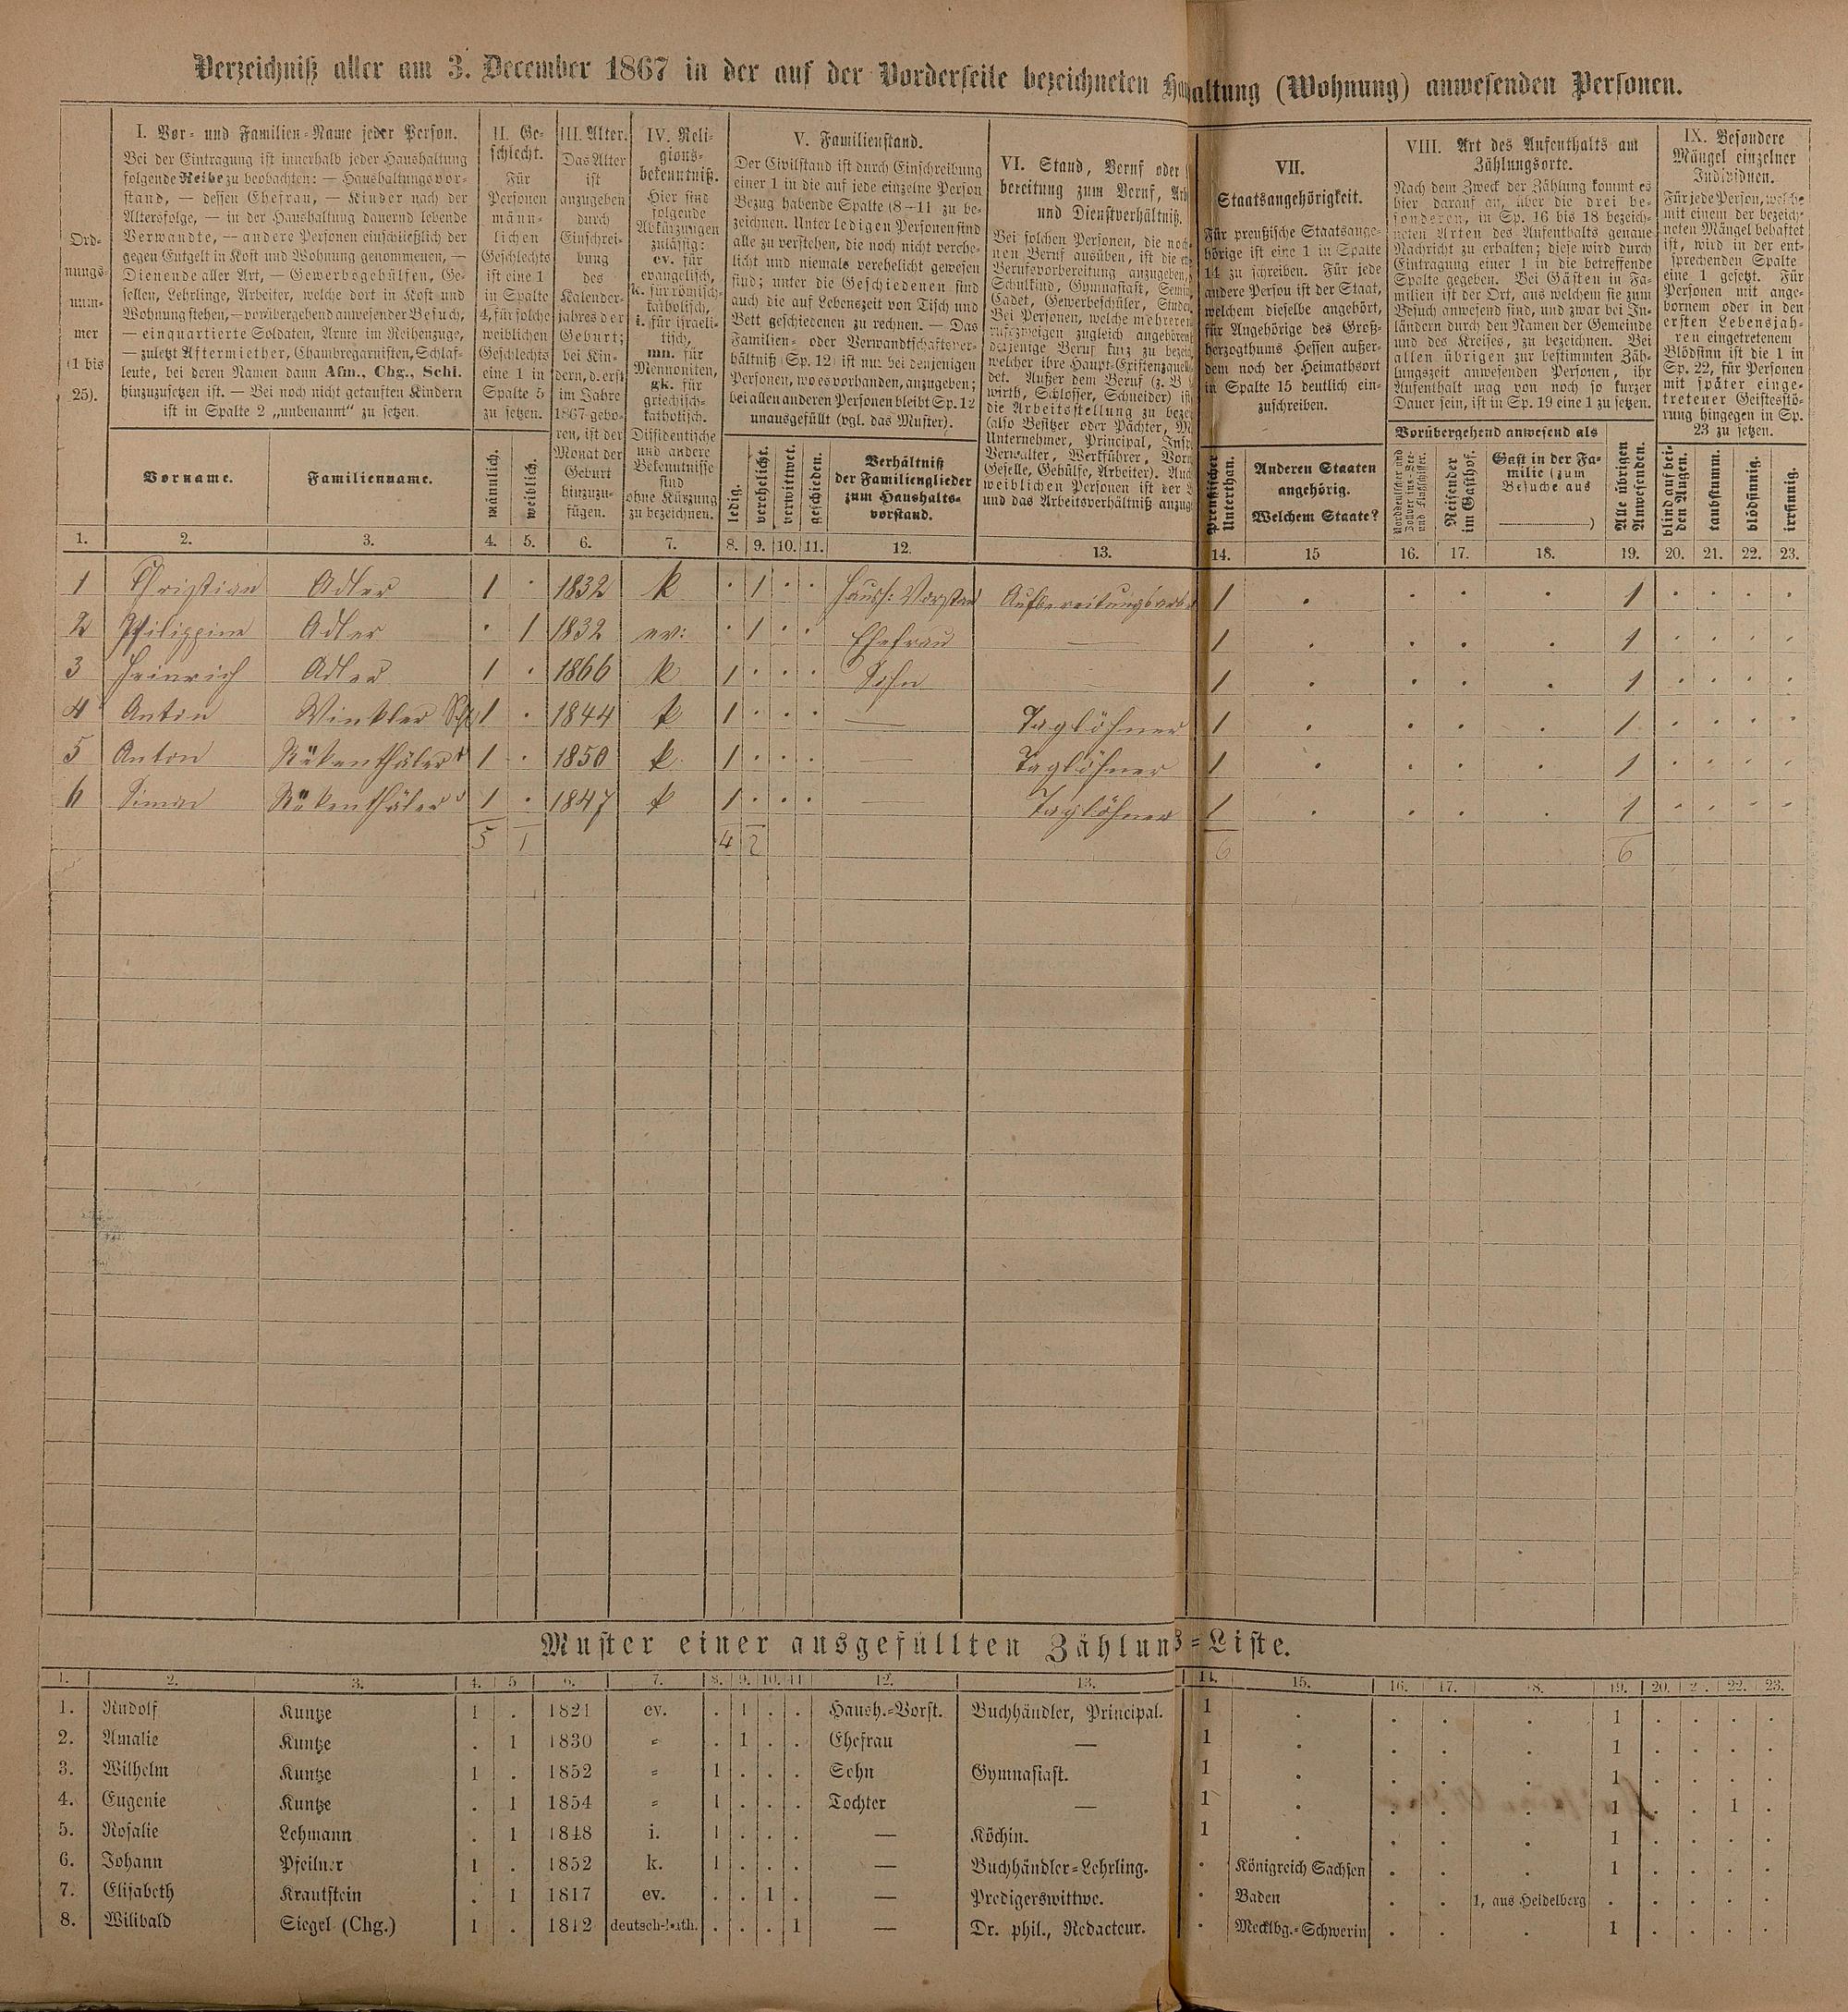 Verzeichniß aller am 3. December 1867 in der auf der Vorderseite bezeichneten Haushaltung (Wohnung) anwesenden Personen.
Ord-
nungs-
num-
mer
(1 bis
25).
I. Vor- und Familien-Name jeder Person.
Bei der Eintragung ist innerhalb jeder Haushaltung
folgende Reihe zu beobachten: — Haushaltungsvor-
stand, — dessen Ehefrau, — Kinder nach der
Altersfolge, — in der Haushaltung dauernd lebende
Verwandte, — andere Personen einschließlich der
gegen Entgelt in Kost und Wohnung genommenen, —
Dienende aller Art, — Gewerbsgehülfen, Ge-
sellen, Lehrlinge, Arbeiter, welche dort in Kost und
Wohnung stehen, — vorübergehend anwesender Besuch,
— einquartierte Soldaten, Arme im Reihenzuge,
— zuletzt Aftermiether, Chambregarnisten, Schlaf-
leute, bei deren Namen dann Afm., Chg., Schl.
hinzuzusetzen ist. — Bei noch nicht getauften Kindern
ist in Spalte 2 „unbenannt“ zu setzen.
Vorname. Familienname.
II. Ge-
schlecht.
Für
Personen
männ-
lichen
Geschlechts
ist eine 1
in Spalte
4, für solche
weiblichen
Geschlechts
eine 1 in
Spalte 5
zu setzen.
männlich. weiblich.
III. Alter.
Das Alter
ist
anzugeben
durch
Einschrei-
bung
des
Kalender-
jahres der
Geburt;
bei Kin-
dern, d. erst
im Jahre
1867 gebo-
ren, ist der
Monat der
Geburt
hinzuzu-
fügen.
IV. Reli-
gions-
bekenntniß.
Hier sind
folgende
Abkürzungen
zulässig:
ev. für
evangelisch,
k. für römisch-
katholisch,
i. für israeli-
tisch,
mn. für
Mennoniten,
gk. für
griechisch-
katholisch.
Dissidentische
und andere
Bekenntnisse
sind
ohne Kürzung
zu bezeichnen.
V. Familienstand.
Der Civilstand ist durch Einschreibung
einer 1 in die auf jede einzelne Person
Bezug habende Spalte (8—11) zu be-
zeichnen. Unter Ledigen Personen sind
alle zu verstehen, die noch nicht verehe-
licht und niemals verehelicht gewesen
sind; unter die Geschiedenen sind
auch die auf Lebenszeit von Tisch und
Bett geschiedenen zu rechnen. — Das
Familien- oder Verwandtschaftsver-
hältniß (Sp. 12) ist nur bei denjenigen
Personen, wo es vorhanden, anzugeben;
bei allen anderen Personen bleibt Sp. 12
unausgefüllt (vgl. das Muster).
ledig. verehelicht. verwittwet. geschieden.
Verhältniß
der Familienglieder
zum Haushalts-
vorstand.
VI. Stand, Beruf oder
bereitung zum Beruf, Arb
und Dienstverhältniß.
Bei solchen Personen, die noch
nen Beruf ausüben, ist die
Berufsvorbereitung anzugeben,
Schulkind, Gymnasiast, Semin
Cadet, Gewerbeschüler, Studen
Bei Personen, welche mehreren
rufszweigen zugleich angehören
derjenige Beruf kurz zu bezei
welcher ihre Haupt-Existenzquelle
det. Außer dem Beruf (z. B.
wirth, Schlosser, Schneider) ist
die Arbeitsstellung zu bezei
(also Besitzer oder Pächter, M
Unternehmer, Principal, Inst
Verwalter, Werkführer, Vor
Geselle, Gehülfe, Arbeiter). Auch
weiblichen Personen ist der B
und das Arbeitsverhältniß anzug
VII.
Staatsangehörigkeit.
Für preußische Staatsange-
hörige ist eine 1 in Spalte
14 zu schreiben. Für jede
andere Person ist der Staat,
welchem dieselbe angehört,
für Angehörige des Groß-
herzogthums Hessen außer-
dem noch der Heimathsort
in Spalte 15 deutlich ein-
zuschreiben.
Preußischer
Unterthan.
Anderen Staaten
angehörig.
Welchem Staate?
VIII. Art des Aufenthalts am
Zählungsorte.
Nach dem Zweck der Zählung kommt es
hier darauf an, über die drei be-
sonderen, in Sp. 16 bis 18 bezeich-
neten Arten des Aufenthalts genaue
Nachricht zu erhalten; diese wird durch
Eintragung einer 1 in die betreffende
Spalte gegeben. Bei Gästen in Fa-
milien ist der Ort, aus welchem sie zum
Besuch anwesend sind, und zwar bei In-
ländern durch den Namen der Gemeinde
und des Kreises, zu bezeichnen. Bei
allen übrigen zur bestimmten Zäh-
lungszeit anwesenden Personen, ihr
Aufenthalt mag von noch so kurzer
Dauer sein, ist in Sp. 19 eine 1 zu setzen.
Vorübergehend anwesend als
Norddeutscher und
Zollvereins-See-
und Flußschiffer.
Reisender
im Gasthof.
Gast in der Fa-
milie (zum
Besuche aus
)
Alle übrigen
Anwesenden.
IX. Besondere
Mängel einzelner
Individuen.
Für jede Person, welche
mit einem der bezeich-
neten Mängel behaftet
ist, wird in der ent-
sprechenden Spalte
eine 1 gesetzt. Für
Personen mit ange-
bornem oder in den
ersten Lebensjah-
ren eingetretenem
Blödsinn ist die 1 in
Sp. 22, für Personen
mit später einge-
tretener Geistesstö-
rung hingegen in Sp.
23 zu setzen.
blind auf bei-
den Augen.
taubstumm. blödsinnig. irrsinnig.
1. 2. 3. 4. 5. 6. 7. 8. 9. 10. 11. 12. 13. 14. 15 16. 17. 18. 19. 20. 21. 22. 23.
1 Christian Adler 1 . 1832 k . 1 . . Haush: Vorstand Aufbereitungsarb 1 . . . . 1 . . . .
2 Philippine Adler . 1 1832 ev: . 1 . . Ehefrau — 1 . . . . 1 . . . .
3 Heinrich Adler 1 . 1866 k 1 . . . Sohn — 1 . . . . 1 . . . .
4 Anton Winkler Schl 1 . 1844 k 1 . . . — Taglöhner 1 . . . . 1 . . . .
5 Anton 1 . 1850 k 1 . . . — Taglöhner 1 . . . . 1 . . . .
6 Simon 1 . 1847 k 1 . . . — Taglöhner 1 . . . . 1 . . . .
5 1 4 2 6 6
Muster einer ausgefüllten Zählungs-Liste.
1. 2. 3. 4. 5 6. 7. 8. 9. 10. 11 12. 13. 14. 15. 16. 17. 18. 19. 20. 2 . 22. 23.
1. Rudolf Kuntze 1 . 1821 ev. . 1 . . Haush.-Vorst. Buchhändler, Principal. 1 . . . . 1 . . . .
2. Amalie Kuntze . 1 1830 = . 1 . . Ehefrau — 1 . . . . 1 . . . .
3. Wilhelm Kuntze 1 . 1852 = 1 . . . Sohn Gymnasiast. 1 . . . . 1 . . . .
4. Eugenie Kuntze . 1 1854 = 1 . . . Tochter — 1 . . . . 1 . . 1 .
5. Rosalie Lehmann . 1 1848 i. 1 . . . — Köchin. 1 . . . . 1 . . . .
6. Johann Pfeilner 1 . 1852 k. 1 . . . — Buchhändler-Lehrling. . Königreich Sachsen . . . 1 . . . .
7. Elisabeth Krautstein . 1 1817 ev. . . 1 . — Predigerswittwe. . Baden . . 1, aus Heidelberg . . . . .
8. Wilibald Siegel (Chg.) 1 . 1812 deutsch-kath. . . . 1 — Dr. phil., Redacteur. . Mecklbg.-Schwerin . . . 1 . . . .